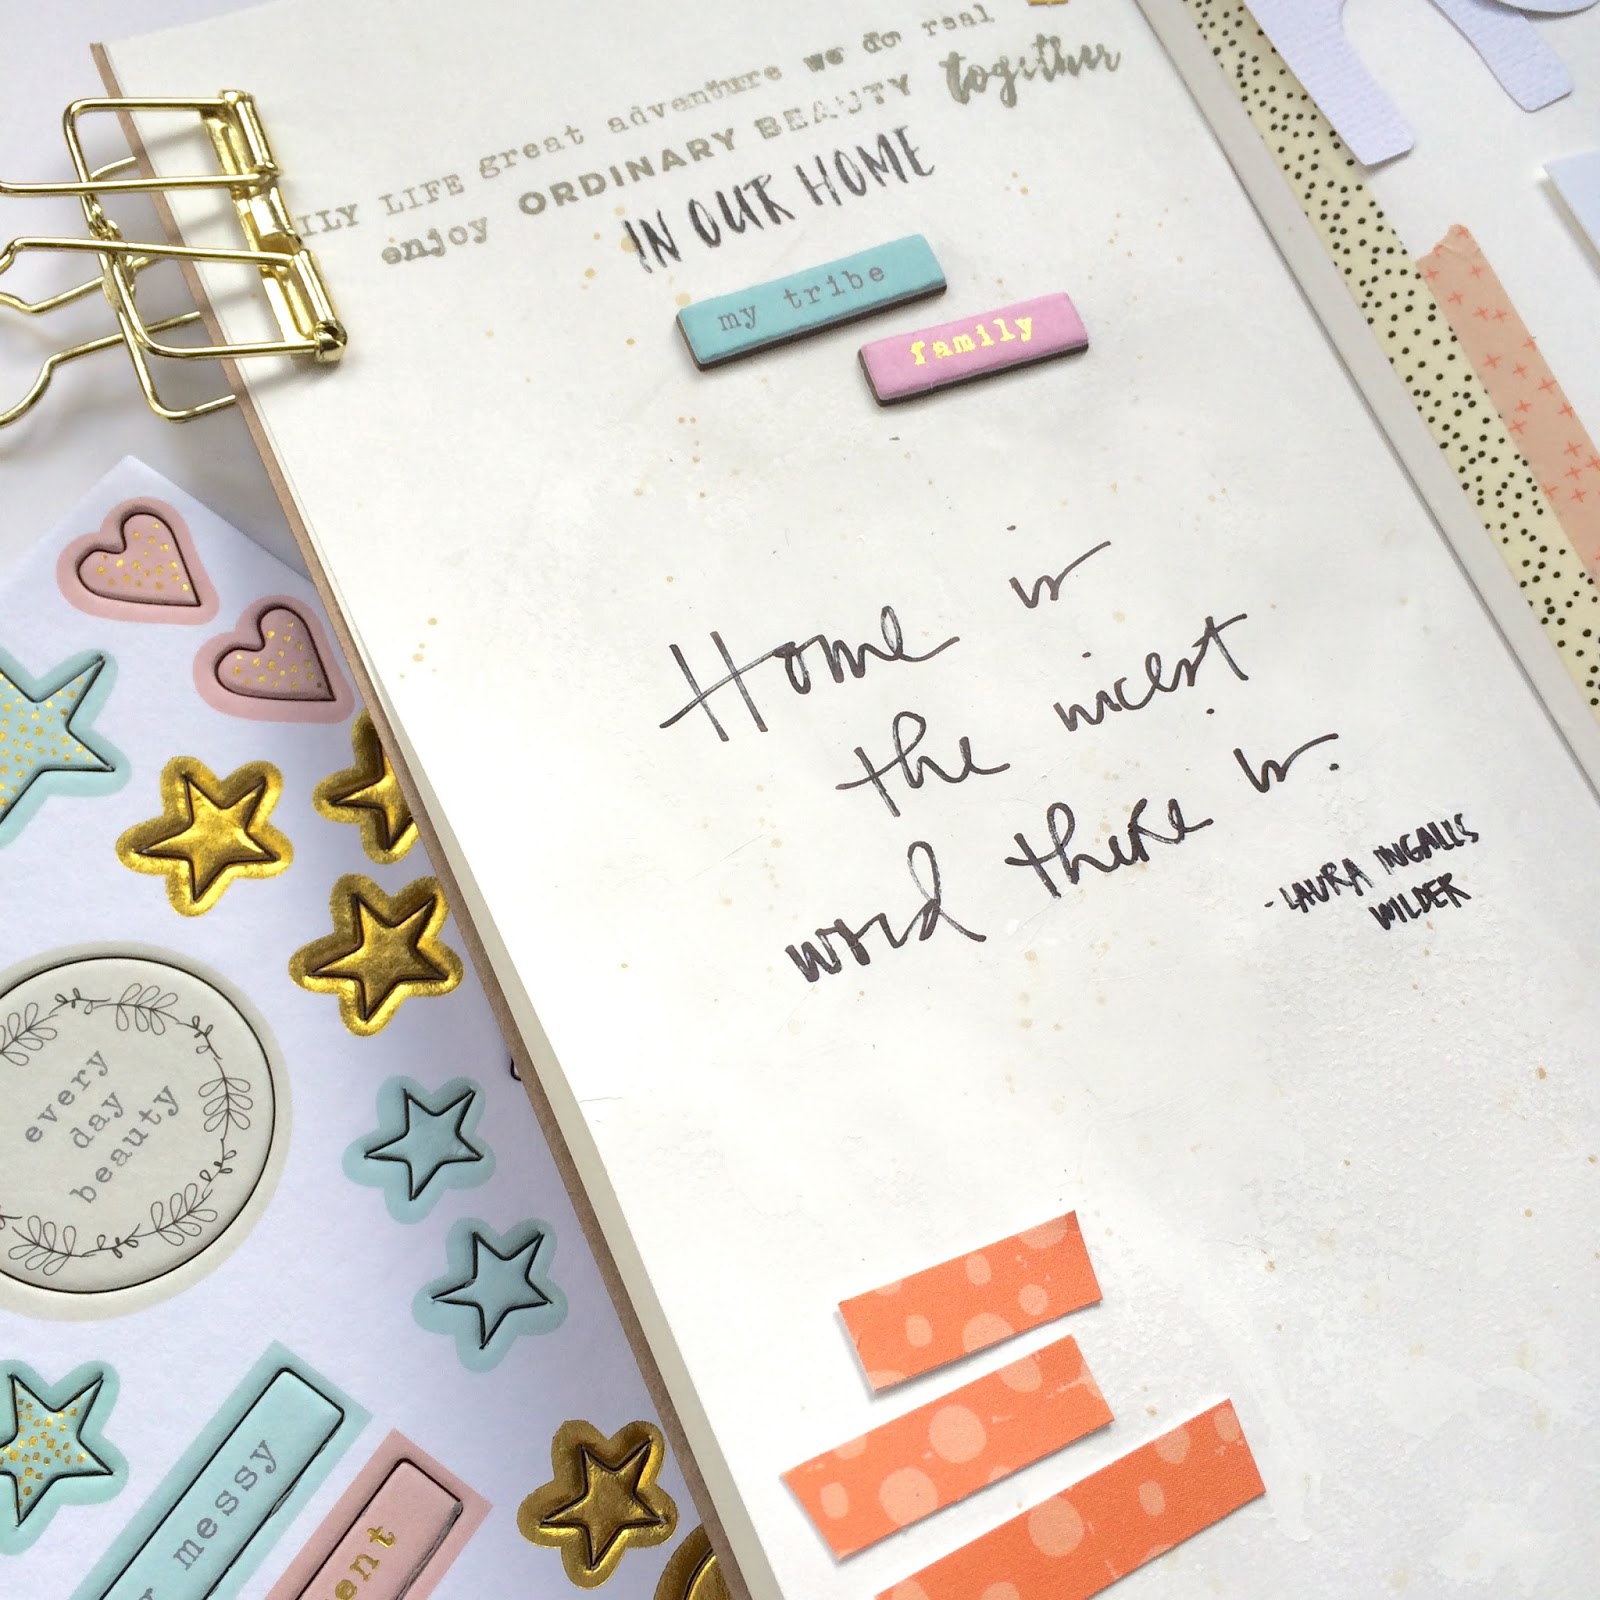 ILY LIFE great adventure we do real
enjoy ORDINARY BEAUTY together
IN OUR HOME
my tribe
family
Home is
the nicest
word there is.
- LAURA INGALLS
WILDER
every
day
beauty
messy